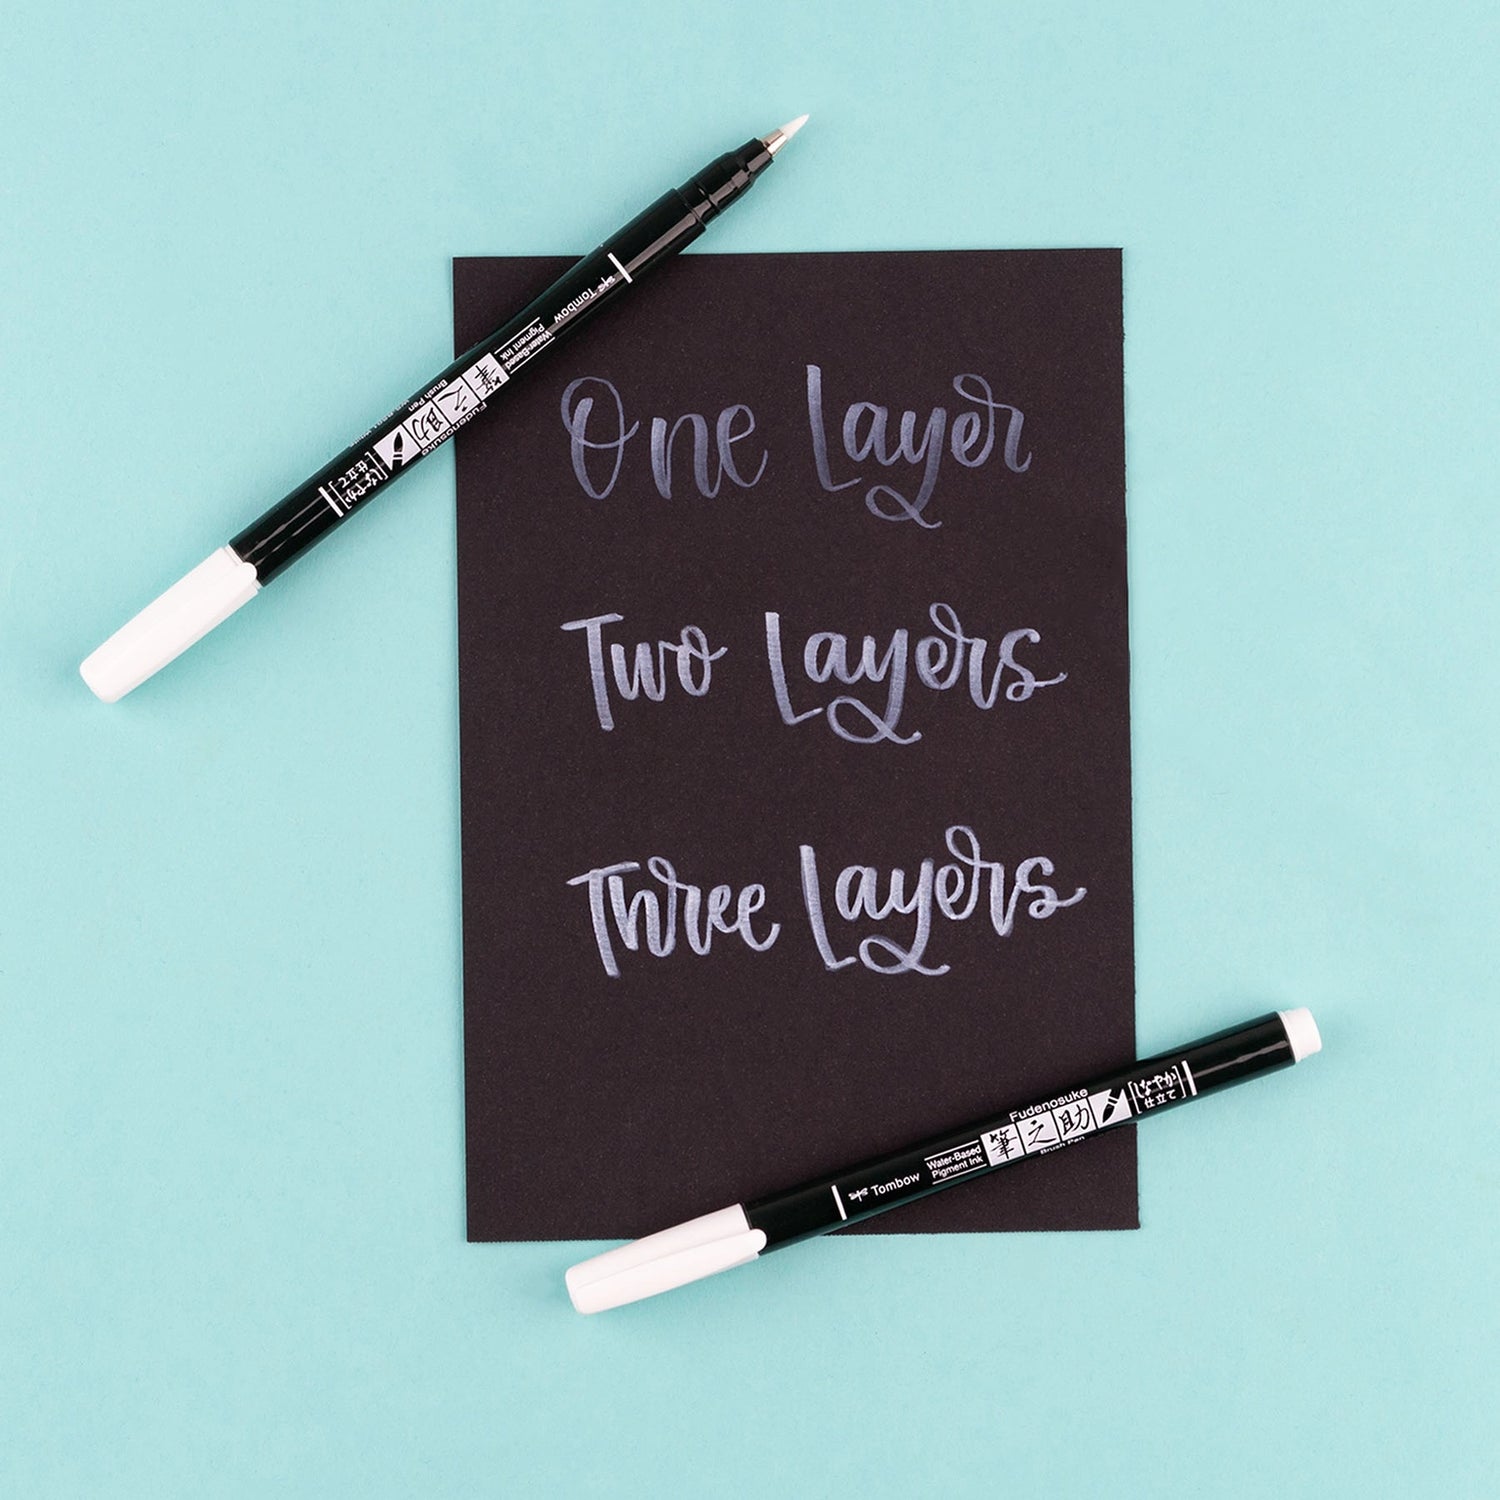 Tombow
Water-Based
Pigment Ink
Fudenosuke
筆之助
Brush Pen
[しなやか]
仕立て
One Layer
Two Layers
Three Layers
Tombow
Water-Based
Pigment Ink
Fudenosuke
筆之助
Brush Pen
[しなやか]
仕立て